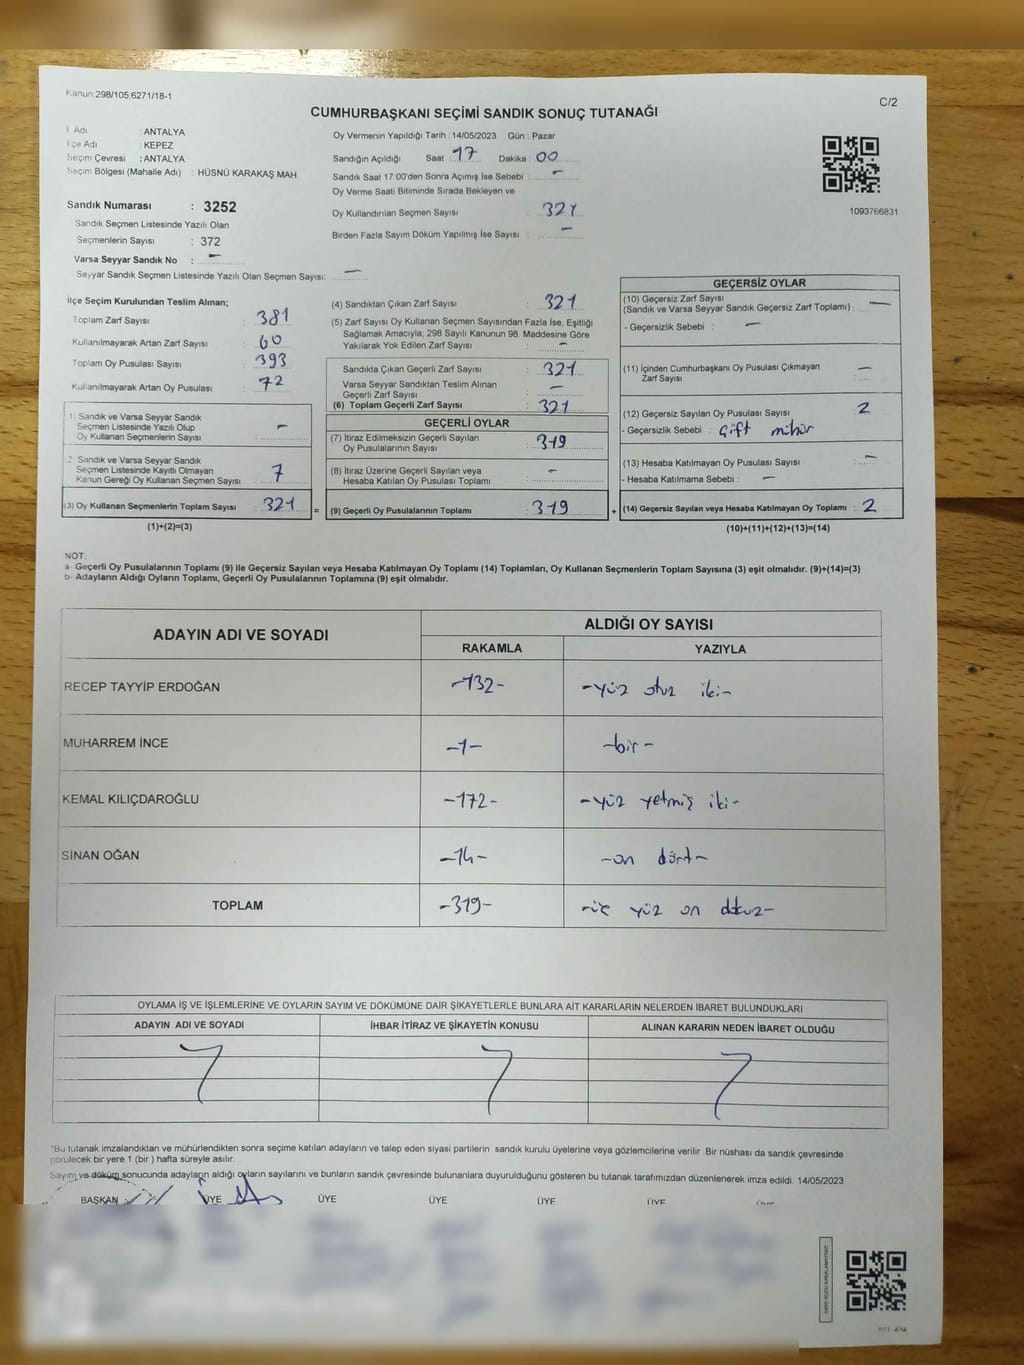 Kanun:298/105;6271/18-1
C/2
CUMHURBAŞKANI SEÇİMİ SANDIK SONUÇ TUTANAĞI
İl Adı : ANTALYA
İlçe Adı : KEPEZ
Seçim Çevresi : ANTALYA
Seçim Bölgesi (Mahalle Adı) : HÜSNÜ KARAKAŞ MAH.
Sandık Numarası : 3252
Sandık Seçmen Listesinde Yazılı Olan
Seçmenlerin Sayısı : 372
Varsa Seyyar Sandık No : -
Seyyar Sandık Seçmen Listesinde Yazılı Olan Seçmen Sayısı: -
Oy Vermenin Yapıldığı Tarih : 14/05/2023 Gün : Pazar
Sandığın Açıldığı Saat : 17 Dakika : 00
Sandık Saat 17:00'den Sonra Açılmış İse Sebebi : -
Oy Verme Saati Bitiminde Sırada Bekleyen ve
Oy Kullandırılan Seçmen Sayısı 321
Birden Fazla Sayım Döküm Yapılmış İse Sayısı : -
1093766831
İlçe Seçim Kurulundan Teslim Alınan;
Toplam Zarf Sayısı : 381
Kullanılmayarak Artan Zarf Sayısı : 60
Toplam Oy Pusulası Sayısı : 393
Kullanılmayarak Artan Oy Pusulası : 72
(1) Sandık ve Varsa Seyyar Sandık
Seçmen Listesinde Yazılı Olup
Oy Kullanan Seçmenlerin Sayısı : -
(2) Sandık ve Varsa Seyyar Sandık
Seçmen Listesinde Kayıtlı Olmayan
Kanun Gereği Oy Kullanan Seçmen Sayısı : 7
(3) Oy Kullanan Seçmenlerin Toplam Sayısı : 321 =
(1)+(2)=(3)
(4) Sandıktan Çıkan Zarf Sayısı : 321
(5) Zarf Sayısı Oy Kullanan Seçmen Sayısından Fazla İse, Eşitliği
Sağlamak Amacıyla; 298 Sayılı Kanunun 98. Maddesine Göre
Yakılarak Yok Edilen Zarf Sayısı : -
Sandıkta Çıkan Geçerli Zarf Sayısı : 321
Varsa Seyyar Sandıktan Teslim Alınan
Geçerli Zarf Sayısı : -
(6) Toplam Geçerli Zarf Sayısı : 321
GEÇERLİ OYLAR
(7) İtiraz Edilmeksizin Geçerli Sayılan
Oy Pusulalarının Sayısı : 319
(8) İtiraz Üzerine Geçerli Sayılan veya
Hesaba Katılan Oy Pusulası Toplamı : -
(9) Geçerli Oy Pusulalarının Toplamı : 319 +
GEÇERSİZ OYLAR
(10) Geçersiz Zarf Sayısı
(Sandık ve Varsa Seyyar Sandık Geçersiz Zarf Toplamı) : -
- Geçersizlik Sebebi : -
(11) İçinden Cumhurbaşkanı Oy Pusulası Çıkmayan
Zarf Sayısı : -
(12) Geçersiz Sayılan Oy Pusulası Sayısı : 2
- Geçersizlik Sebebi : Çift mühür
(13) Hesaba Katılmayan Oy Pusulası Sayısı : -
- Hesaba Katılmama Sebebi : -
(14) Geçersiz Sayılan veya Hesaba Katılmayan Oy Toplamı : 2
(10)+(11)+(12)+(13)=(14)
NOT:
a- Geçerli Oy Pusulalarının Toplamı (9) ile Geçersiz Sayılan veya Hesaba Katılmayan Oy Toplamı (14) Toplamları, Oy Kullanan Seçmenlerin Toplam Sayısına (3) eşit olmalıdır. (9)+(14)=(3)
b- Adayların Aldığı Oyların Toplamı, Geçerli Oy Pusulalarının Toplamına (9) eşit olmalıdır.
ADAYIN ADI VE SOYADI ALDIĞI OY SAYISI
RAKAMLA YAZIYLA
RECEP TAYYİP ERDOĞAN -132- -yüz otuz iki-
MUHARREM İNCE -1- -bir-
KEMAL KILIÇDAROĞLU -172- -yüz yetmiş iki-
SİNAN OĞAN -14- -on dört-
TOPLAM -319- -üç yüz on dokuz-
OYLAMA İŞ VE İŞLEMLERİNE VE OYLARIN SAYIM VE DÖKÜMÜNE DAİR ŞİKAYETLERLE BUNLARA AİT KARARLARIN NELERDEN İBARET BULUNDUKLARI
ADAYIN ADI VE SOYADI İHBAR İTİRAZ VE ŞİKAYETİN KONUSU ALINAN KARARIN NEDEN İBARET OLDUĞU
*Bu tutanak imzalandıktan ve mühürlendikten sonra seçime katılan adayların ve talep eden siyasi partilerin sandık kurulu üyelerine veya gözlemcilerine verilir .Bir nüshası da sandık çevresinde
görülecek bir yere 1 (bir ) hafta süreyle asılır.
Sayım ve döküm sonucunda adayların aldığı oyların sayılarını ve bunların sandık çevresinde bulunanlara duyurulduğunu gösteren bu tutanak tarafımızdan düzenlenerek imza edildi. 14/05/2023
BAŞKAN ÜYE ÜYE ÜYE ÜYE ÜYE